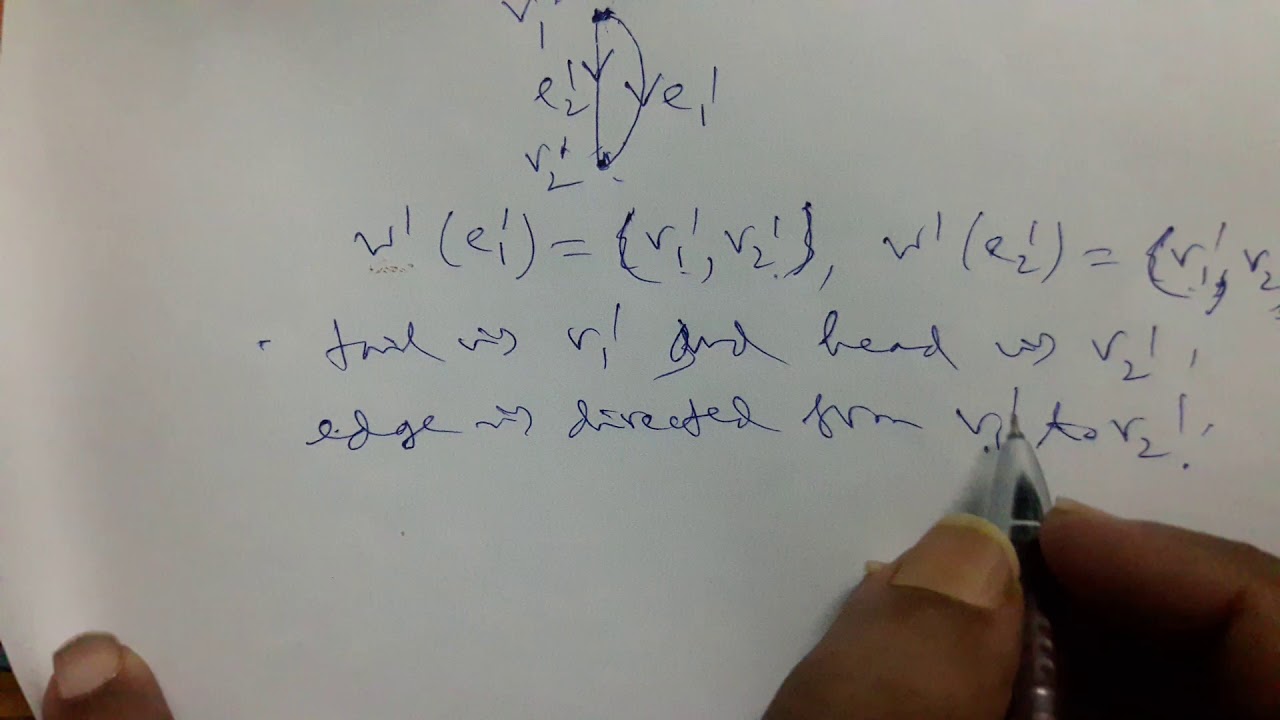 v₁'
e₂' e₁'
v₂'
ψ'(e₁') = {v₁', v₂'}, ψ'(e₂') = {v₁', v₂
tail is v₁' and head is v₂',
edge is directed from v₁' to v₂'.